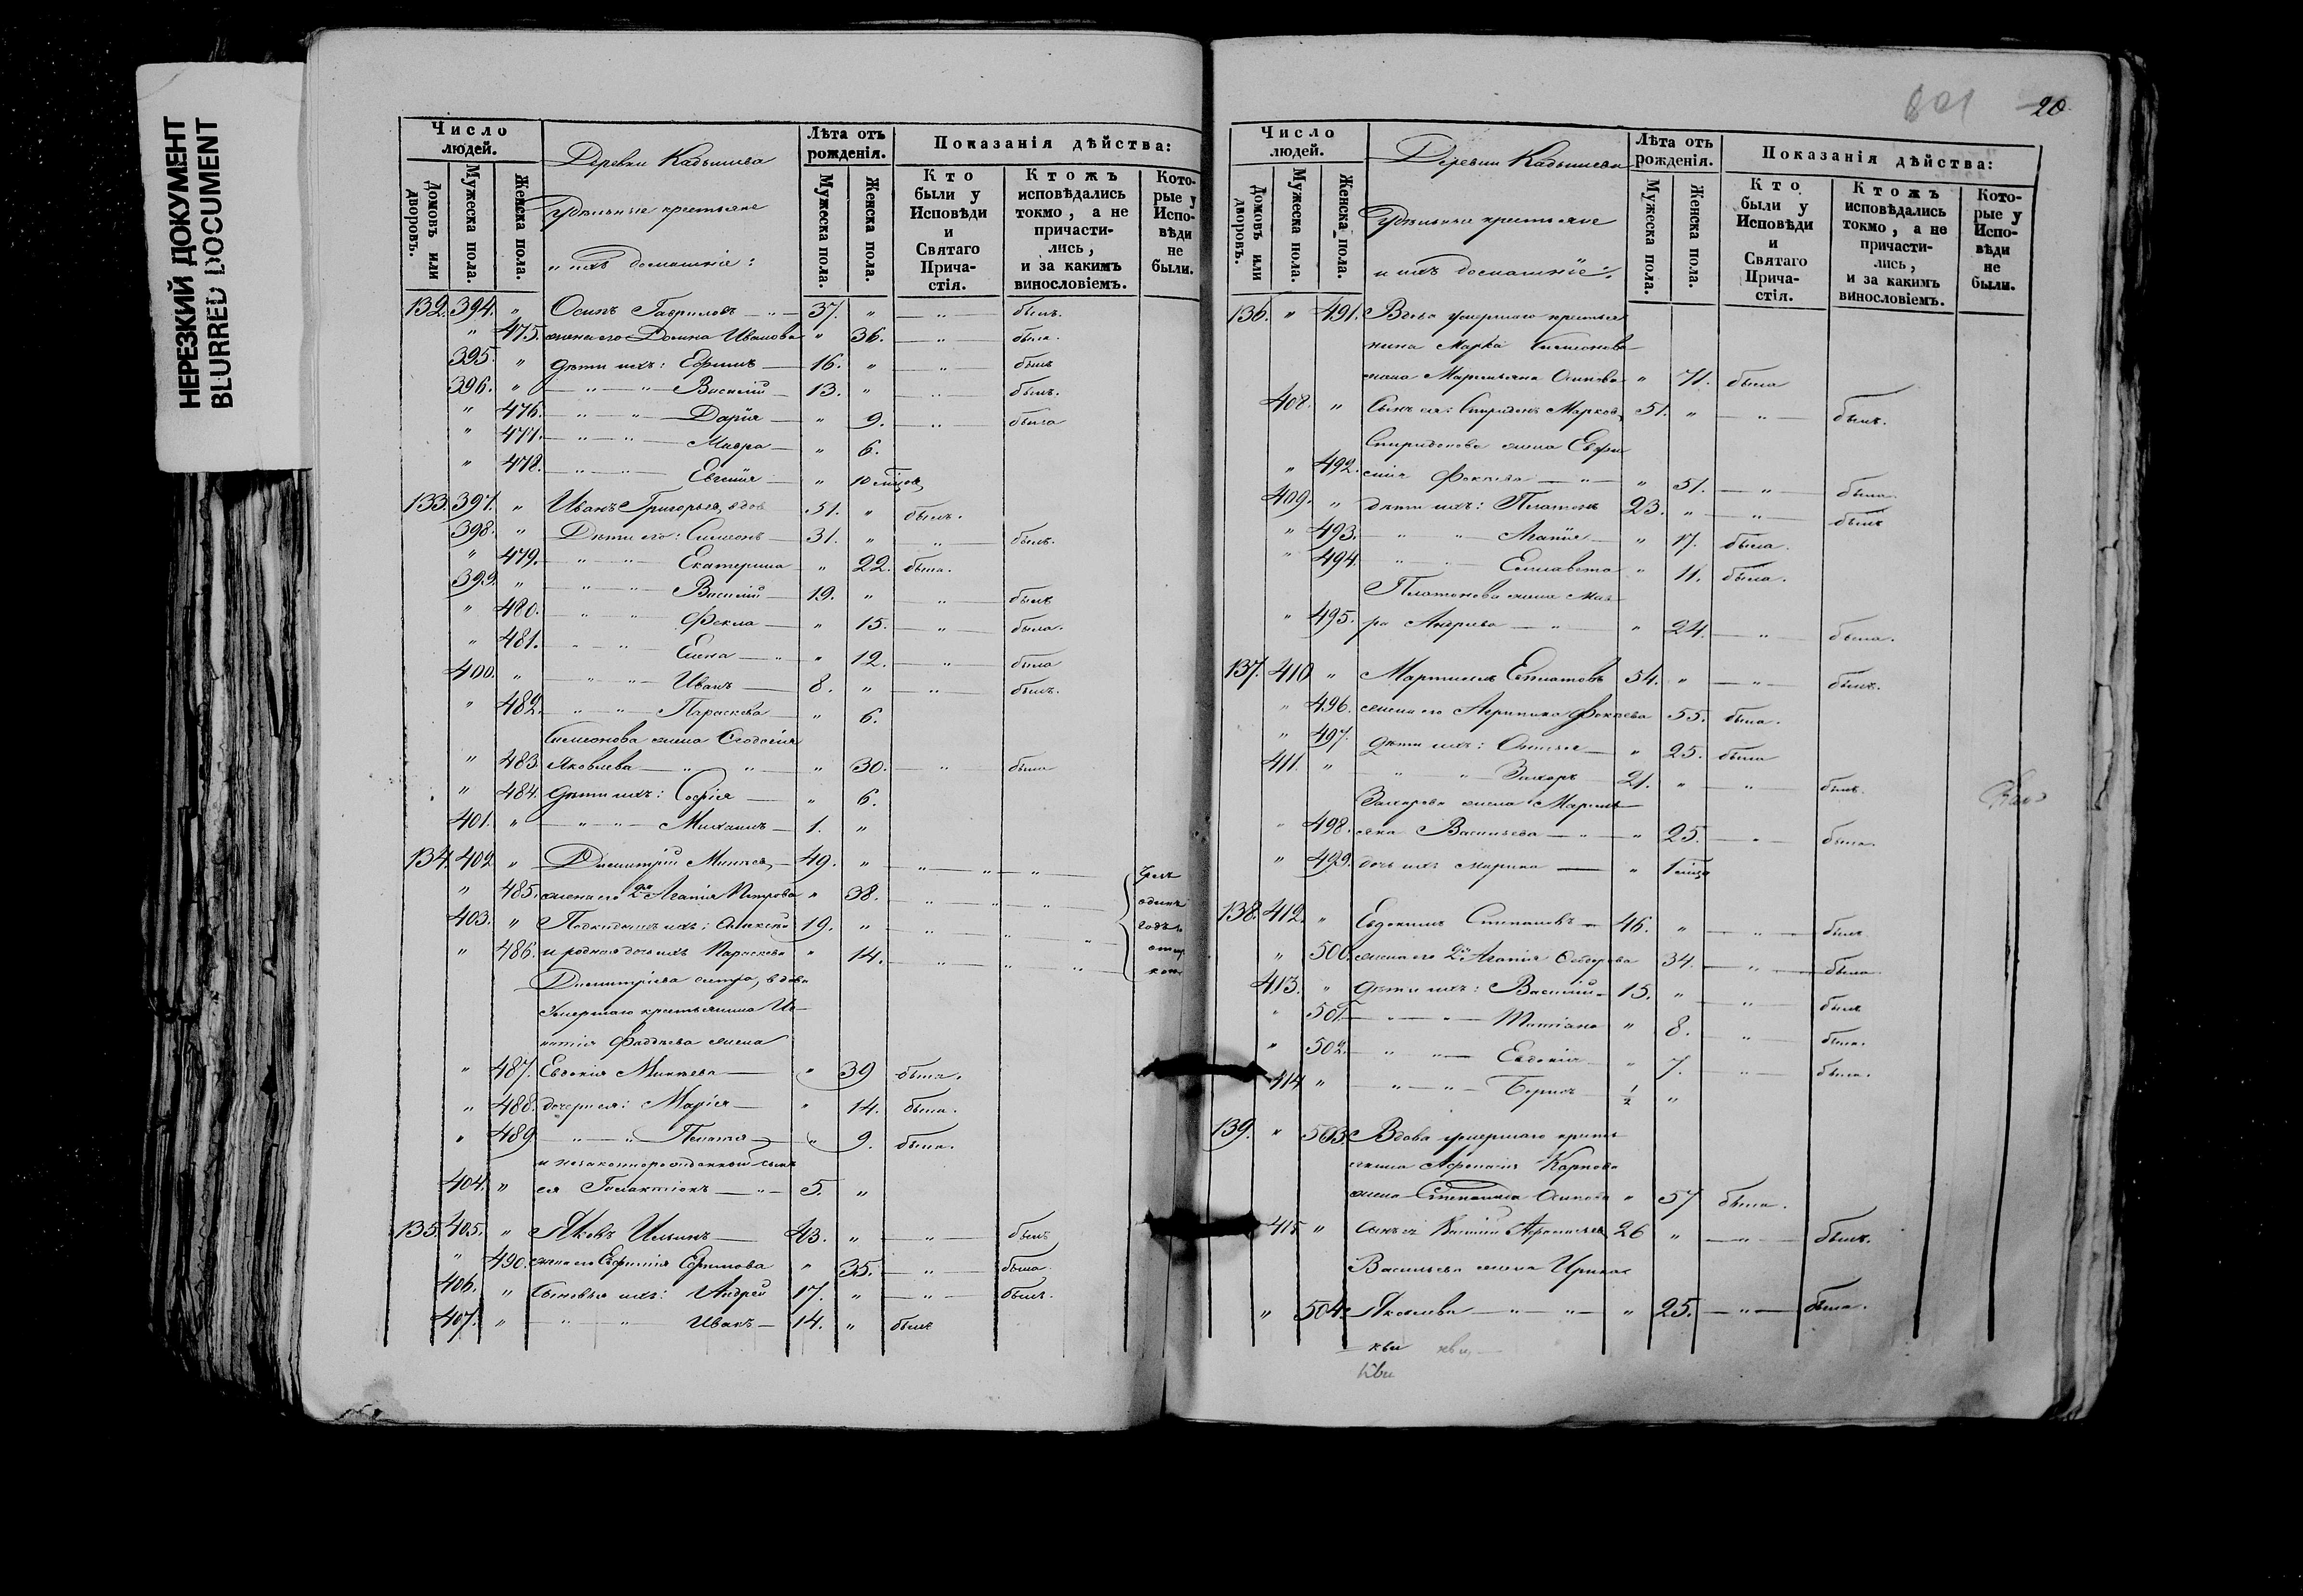 НЕРЕЗКИЙ ДОКУМЕНТ
BLURRED DOCUMENT
Число людей.
Домовъ или дворовъ.
Мужеска пола.
Женска пола.
Деревни Кадышева
Удѣльные крестьяне
и ихъ домашніе:
Лѣта отъ рожденія.
Мужеска пола.
Женска пола.
Показанія дѣйства:
Кто были у Исповѣди и Святаго Прича- стія.
Ктожъ исповѣдались токмо, а не причасти- лись, и за какимъ винословіемъ.
Кото- рые у Испо- вѣди не были.
132. 394. " Осипъ Гавриловъ 37. " " былъ.
" 475. жена его Домна Иванова " 36. " была.
395. " дѣти ихъ: Ефимъ 16. " " былъ
396. " " " Василій 13. " " былъ.
" 476. " " Дарія " 9. " была
" 477. " " Мавра " 6.
" 478. " " Евгенія " 10
133. 397. " Иванъ Григорьевъ, вдов 51. " былъ.
398. " Дѣти его: Симеонъ 31. " " былъ.
" 479. " " Екатерина " 22. была.
399. " " " Василій 19. " " былъ
" 480. " " Фекла " 15. " была.
" 481. " " Елена " 12. " была
400. " " " Иванъ 8. " " былъ.
" 482. " " Параскева " 6.
Симеонова жена Феодосія
" 483. Яковлева " " " 30. " была
" 484. дѣти ихъ: Софія " 6.
401. " " " Михаилъ 1. "
134. 402. " Димитрій Минѣев 49. " " " "
" 485. жена его 2я Агафія Петрова " 38. " " "
403. " ихъ: 19. " " " "
" 486. и родная дочь ихъ Параскева " 14. " " "
одинъ
годъ
Димитріева сестра, вдова
умершаго крестьянина Иг-
натія Фаддѣева жена
" 487. Евдокія Минѣева " 39 была.
" 488. дочери ея: Марія " 14. была.
" 489 " " Пелагія " 9. была.
и незаконнорожденный сынъ
404. " ея Галактіонъ " 5. "
135. 405. " Яковъ Ильинъ 43. " " былъ
" 490. жена его Евфимія Ефимова " 35. " была.
406. " Сыновья ихъ: Андрей 17. " " былъ.
407. " " " Иванъ 14. " былъ
20
Число людей.
Домовъ или дворовъ.
Мужеска пола.
Женска пола.
Деревни Кадышева
Удѣльные крестьяне
и ихъ домашніе:
Лѣта отъ рожденія.
Мужеска пола.
Женска пола.
Показанія дѣйства:
Кто были у Исповѣди и Святаго Прича- стія.
Ктожъ исповѣдались токмо, а не причасти- лись, и за какимъ винословіемъ.
Кото- рые у Испо- вѣди не были.
136. " 491. Вдова умершаго крестья-
нина Марка Симеонова
жена Маремьяна Осипова " 71. была
408. " Сынъ ея: Спиридонъ Марков 51. " " былъ.
Спиридонова жена Евфи-
" 492. Фокеева " " 51. " была.
409. " дѣти ихъ: Платонъ 23. " " былъ
" 493. " " Агапія " 17. была.
" 494. " " Елисавета " 11. была.
Платонова жена Мав-
" 495. ра Андреева " " 24. " была.
137. 410 " Мартинъ Евпатовъ 54. " " былъ.
" 496. жена его Агрипина Фокеева 55. была.
" 497. дѣти ихъ: " 25. была
411. " " " Захаръ 21. " " былъ.
Захарова жена Марем-
" 498. яна Васильева " " 25. " была.
" 499. дочь ихъ Марина " 1
138. 412. " Евдокимъ Степановъ 46. " " былъ
" 500. жена его 2я Агафія 34. " была
413. " дѣти ихъ: Василій 15. " " былъ
" 501. " " Татіана " 8. " была.
" 502. " " Евдокія " 7. " была.
414 " " " Борисъ 1/2 "
139. " 503. Вдова умершаго крестья-
янина Афанасія Карпова
жена Степанида Осипова " 57 была.
415 " Сынъ ея Василій Афанасьев 26 " " былъ.
Васильева жена Ирина
" 504. Яковлева " " " 25. " была.